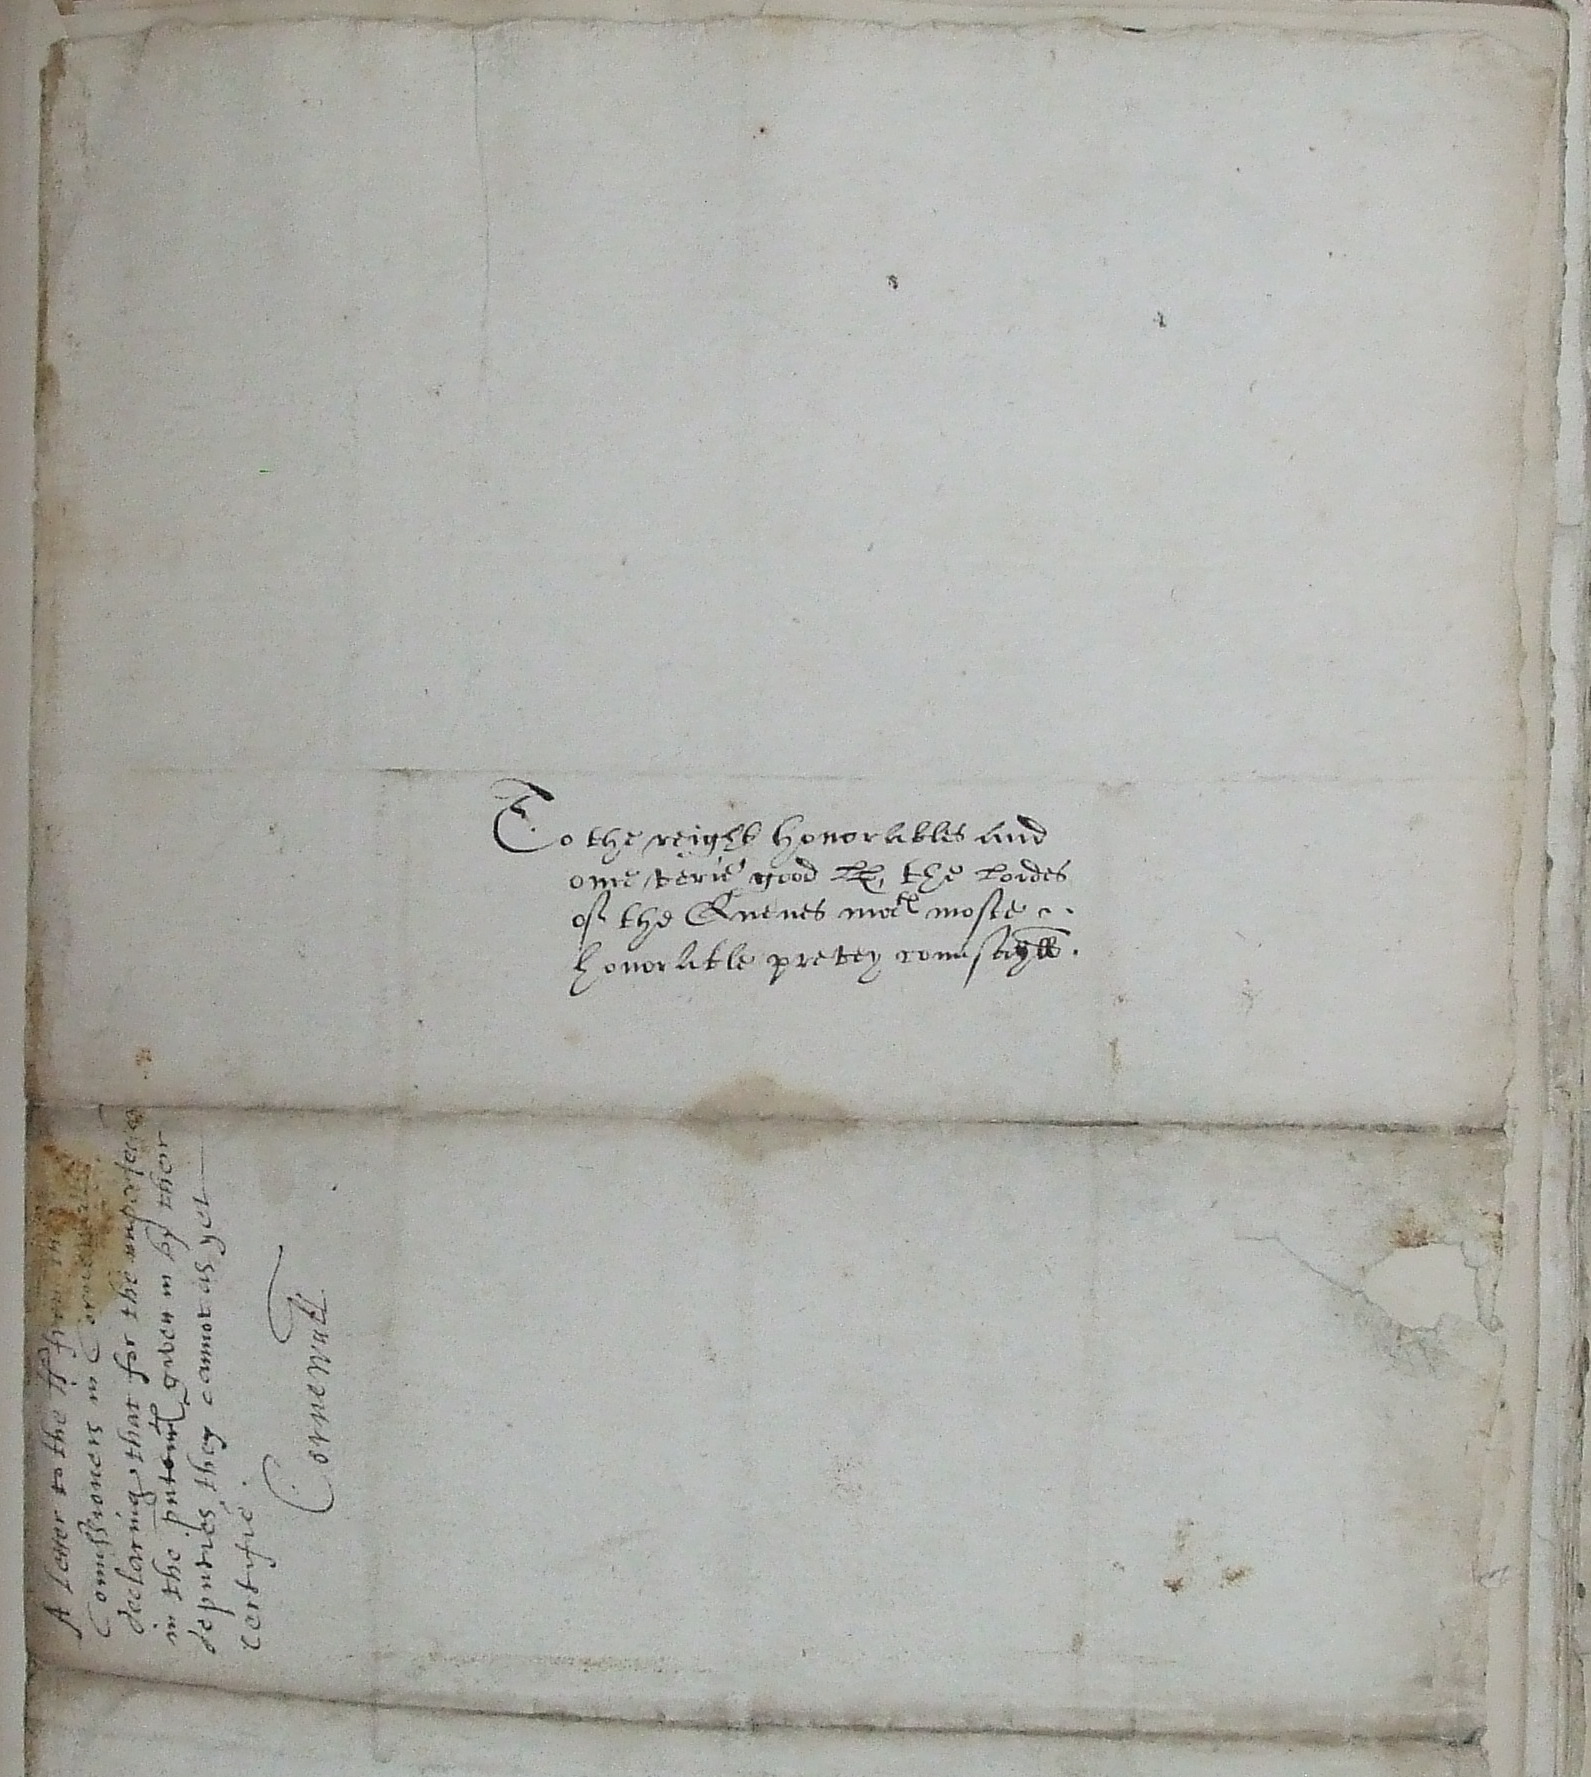 To the reight honorables and
oure verie good LL, the Lordes
of the Quenes matis moste
honorable prevey counsayll.
A letter to the ll from the
Comissioners in Cornewall
declaring that for the imperfec
in the given in by ther
deputies they cannot as yet
certifie.
Cornewall